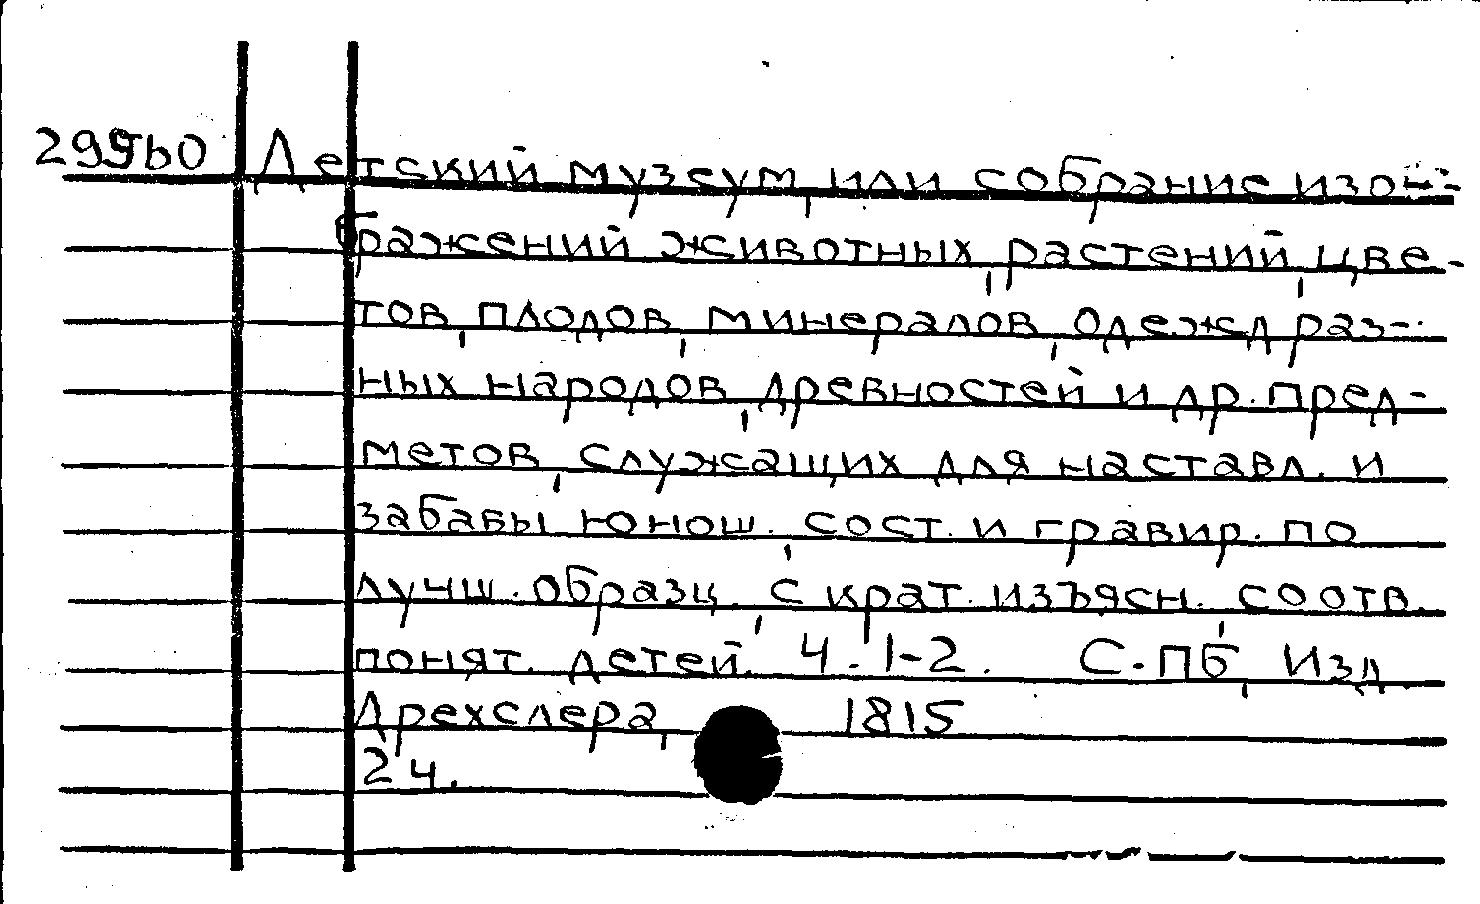 Детский музеум, или собрание изо-
бражений животных, растений, цве-
тов, плодов, минералов, одежд раз-
ных народов, древностей и др. пред-
метов, служащих для наставл. и
забавы юнош., сост. и гравир. по
лучш. образц., с крат. изъясн., соотв.
понят. детей. Ч. 1-2. С.ПБ, Изд
Дрехслера, 1815
2 ч.